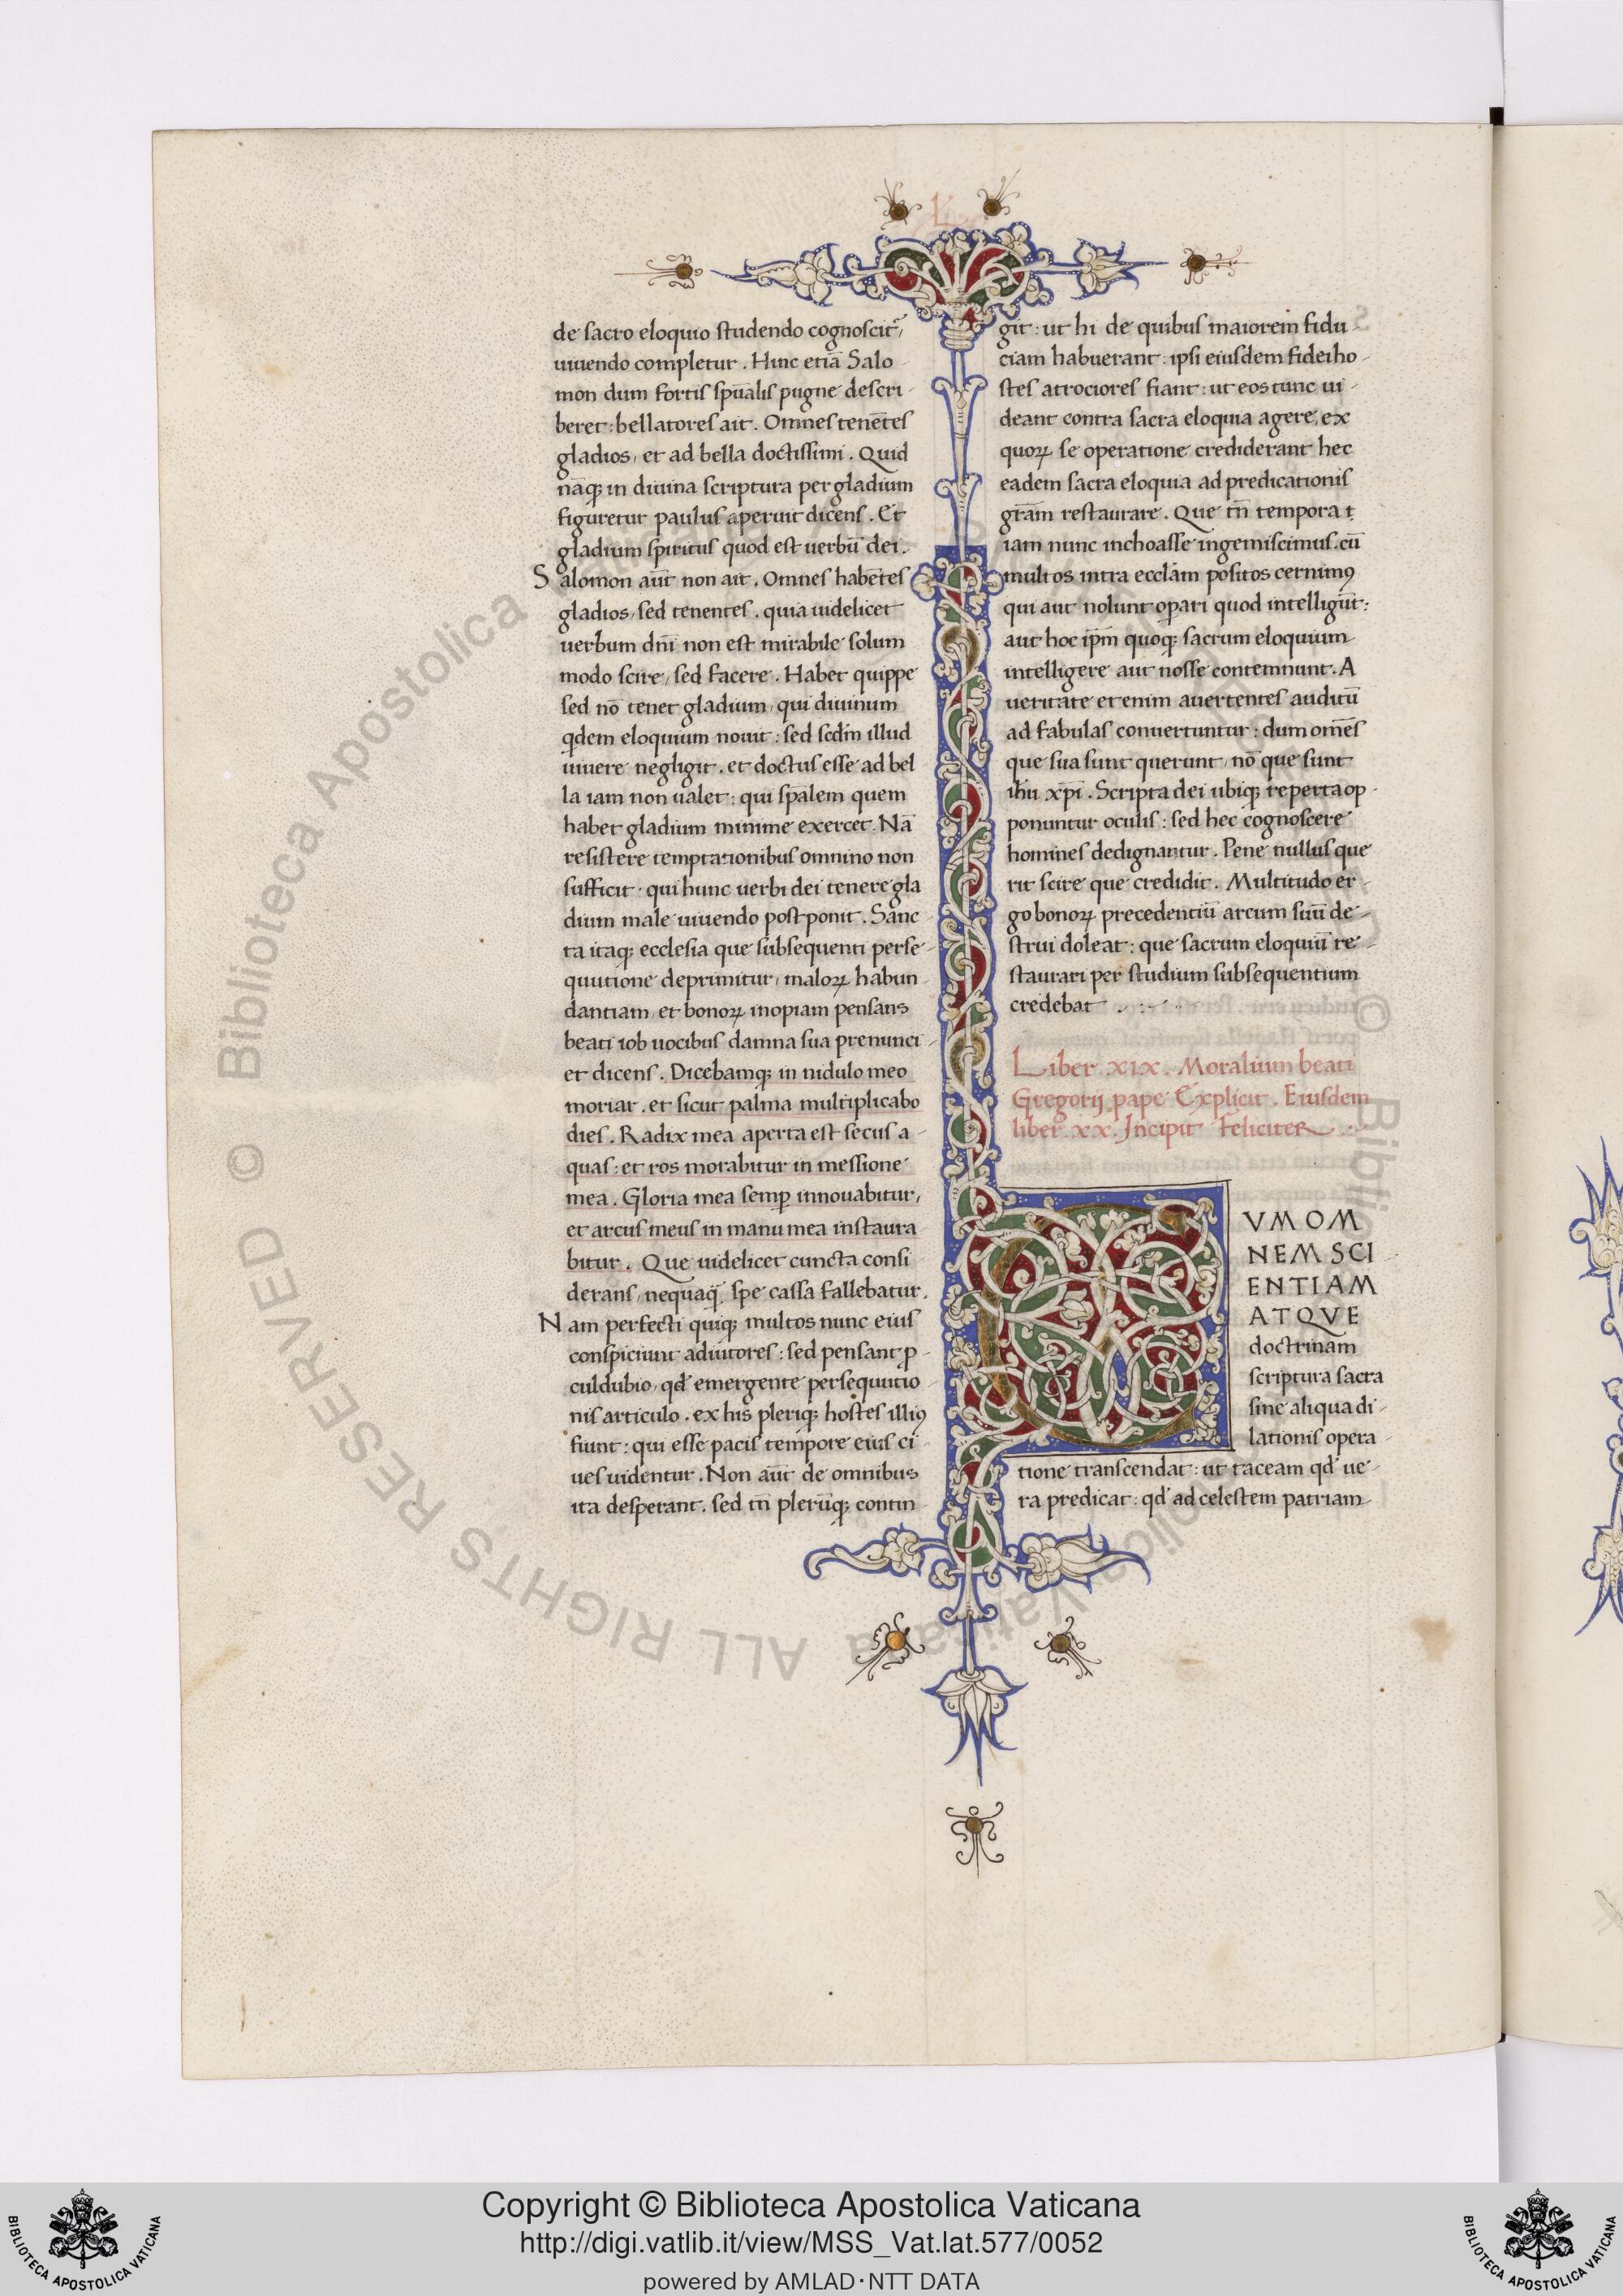 de sacro eloquio studendo cognoscit᷑,
uiuendo completur. Hinc etiā Salo-
mon dum fortis sp̄ualis pugne descri-
beret: bellatores ait. Omnes tenētes
gladios, et ad bella doctissimi. Quid
nāq; in diuina scriptura per gladium
figuretur paulus aperuit dicens. Et
gladium spiritus quod est uerbū dei.
Salomon aūt non ait. Omnes habētes
gladios, sed tenentes. quia uidelicet
uerbum dn̄i non est mirabile solum
modo scire, sed facere. Habet quippe
sed nō tenet gladium, qui diuinum
qdem eloquium nouit: sed scdm illud
uiuere negligit. et doctus esse ad bel
la iam non ualet: qui sp̄alem quem
habet gladium minime exercet. Nā
resistere temptationibus omnino non
sufficit. qui hunc uerbi dei tenere gla
dium male uiuendo postponit. Sanc-
ta itaq; ecclesia que subsequenti perse-
quutione deprimitur, maloꝝ habun-
dantiam, et bonoꝝ inopiam pensans
beati iob uocibus damna sua prenunci-
et dicens. Dicebamq; in nidulo meo
moriar. et sicut palma multiplicabo
dies. Radix mea aperta est secus a-
quas: et ros morabitur in messione
mea. Gloria mea semp̱ innouabitur,
et arcus meus in manu mea instaura-
bitur. Que uidelicet cuncta consi-
derans, nequaq̄ spe cassa fallebatur.
Nam perfecti quiq; multos nunc eius
conspiciunt adiutores: sed pensant, ꝓ-
culdubio, qđ emergente persequutio-
nis articulo. ex his pleriq; hostes illiꝰ
fiunt: qui esse pacis tempore eius ci-
ues uidentur. Non aūt de omnibus
ita desperant. sed tn̄ plerūq; contin-
git: ut hi de quibus maiorem fidu-
ciam habuerant: ipsi eiusdem fidei ho-
stes atrociores fiant: ut eos tunc ui-
deant contra sacra eloquia agere, ex
quoꝝ se operatione crediderant hec
eadem sacra eloquia ad predicationis
gr̄am restaurare. Que tn̄ tempora
iam nunc inchoasse ingemiscimus. cū
multos intra eccl̄am positos cernimꝰ
qui aut nolunt oꝑari quod intelligūt:
aut hoc ip̄m quoq; sacrum eloquium
intelligere aut nosse contemnunt. A
ueritate etenim auertentes auditū
ad fabulas conuertuntur: dum om̄es
que sua sunt querunt, nō que sunt
ihu xp̄i. Scripta dei ubiq; reperta op-
ponuntur oculis: sed hec cognoscere
homines dedignantur. Pene nullus que
rit scire que credidit. Multitudo er-
go bonoꝝ precedentiū arcum suū de-
strui doleat: que sacrum eloquiū re-
staurari per studium subsequentium
credebat
Liber .xix. Moralium beati
Gregorij pape Explicit. Eiusdem
liber .xx. Incipit feliciter
C
VM OM
NEM SCI
ENTIAM
ATQVE
doctrinam
scriptura sacra
sine aliqua di-
lationis opera-
tione transcendat: ut taceam qđ ue-
ra predicat: qđ ad celestem patriam
© Biblioteca Apostolica Vaticana
ALL RIGHTS RESERVED
Copyright © Biblioteca Apostolica Vaticana
http://digi.vatlib.it/view/MSS_Vat.lat.577/0052
powered by AMLAD·NTT DATA
BIBLIOTECA APOSTOLICA VATICANA
BIBLIOTECA APOSTOLICA VATICANA